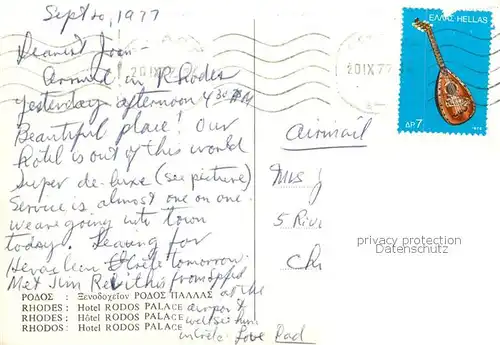 Sept 20, 1977
Dearest Joan –
Arrived in Rhodes
yesterday afternoon 4:30 PM
Beautiful place! Our
Hotel is out of this world
Super de-luxe (see picture)
Service is almost one on one.
we are going into town
today. Leaving for
Crete tomorrow.
Met Jim this from Spfd
at the
airport &
we'll see him
in Crete. Love Dad
ΡΟΔΟΣ : Ξενοδοχεῖον ΡΟΔΟΣ ΠΑΛΛΑΣ
RHODES : Hotel RODOS PALACE
RHODES : Hôtel RODOS PALACE
RHODOS : Hotel RODOS PALACE
20 IX 77
20 IX 77
ΕΛΛΑΣ-HELLAS
ΔΡ 7
Airmail
Mrs
5
privacy protection
Datenschutz